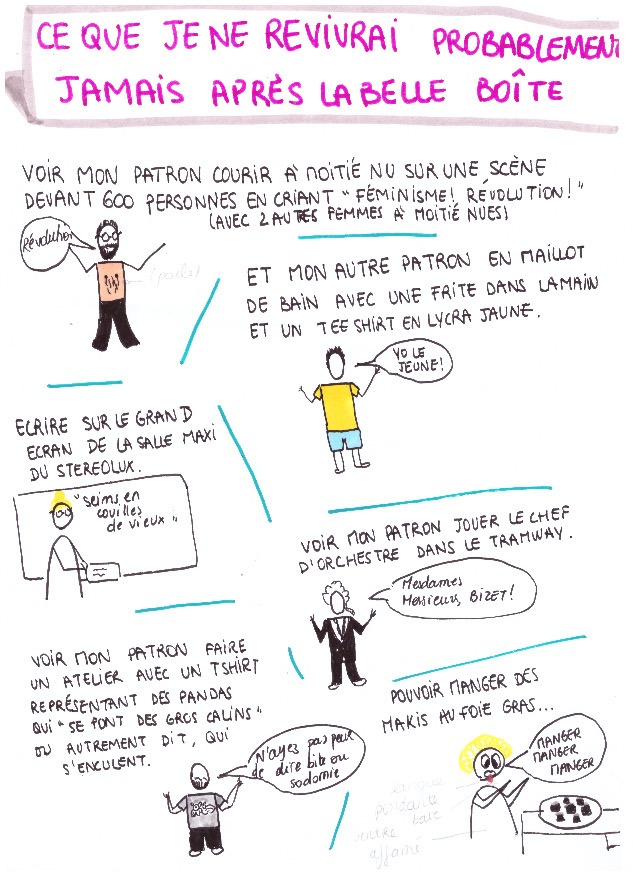 CE QUE JE NE REVIVRAI PROBABLEMENT
JAMAIS APRÈS LA BELLE BOÎTE
VOIR MON PATRON COURIR À MOITIÉ NU SUR UNE SCÈNE
DEVANT 600 PERSONNES EN CRIANT "FÉMINISME! RÉVOLUTION!"
(AVEC 2 AUTRES FEMMES À MOITIÉ NUES)
Révolution
(poils)
ET MON AUTRE PATRON EN MAILLOT
DE BAIN AVEC UNE FRITE DANS LA MAIN
ET UN TEE SHIRT EN LYCRA JAUNE.
YO LE
JEUNE!
ECRIRE SUR LE GRAND
ECRAN DE LA SALLE MAXI
DU STEREOLUX.
"seins en
couilles
de vieux"
VOIR MON PATRON JOUER LE CHEF
D'ORCHESTRE DANS LE TRAMWAY.
Mesdames
Messieurs, BIZET!
VOIR MON PATRON FAIRE
UN ATELIER AVEC UN TSHIRT
REPRÉSENTANT DES PANDAS
QUI "SE FONT DES GROS CALINS"
OU AUTREMENT DIT, QUI
S'ENCULENT.
N'ayez pas peur
de dire bite ou
sodomie
POUVOIR MANGER DES
MAKIS AU FOIE GRAS...
MANGER
MANGER
MANGER
langue
pendante
bave
affamé